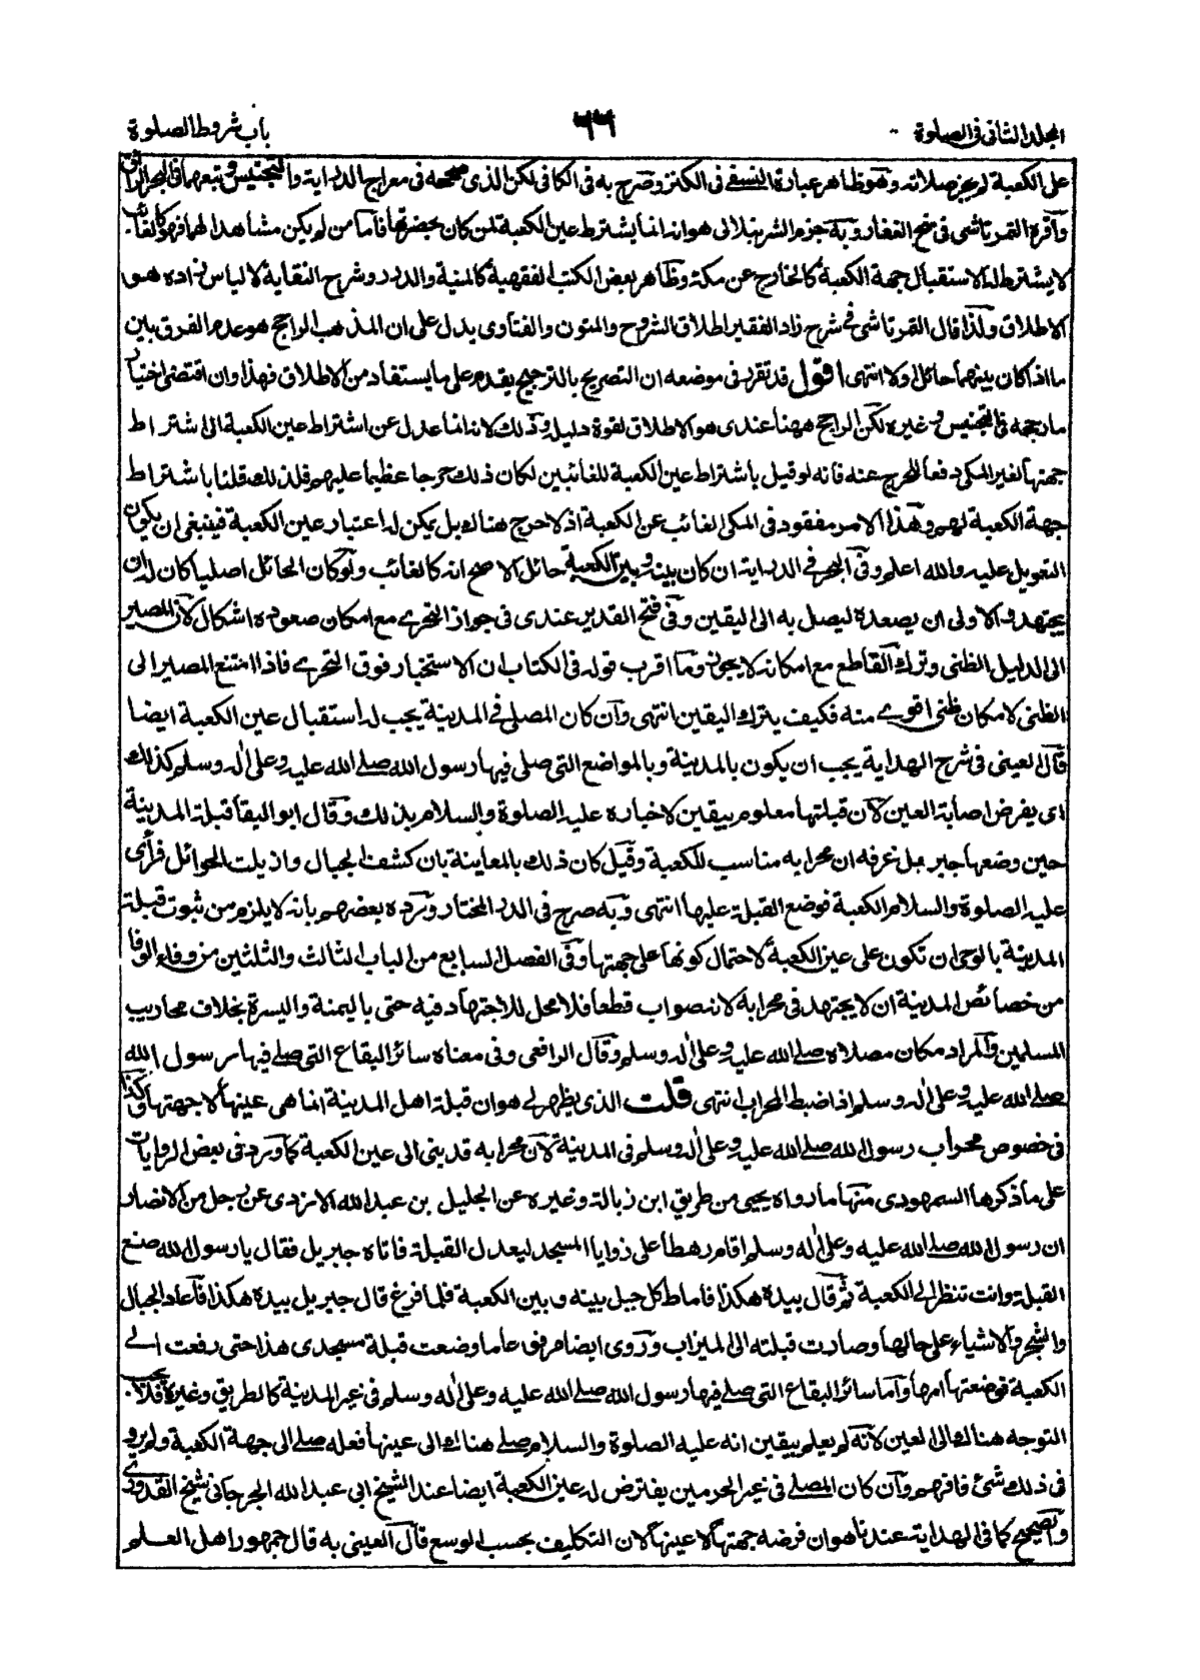 المجلد الثانى فى الصلوة
٦٦
باب شروط الصلوة
على الكعبة لم يجز صلاته وهو ظاهر عبارة النسفى فى الكنز وصرح به فى الكافى لكن الذى صححه فى معراج الدراية والتجنيس وتبعهما فى البحر الرائق
وأقره التمرتاشى فى منح الغفار وبه جزم الشرنبلالى هو انه انما يشترط عين الكعبة لمن كان بحضرتها فأما من لم يكن مشاهدا لها فهو كالغائب
لا يشترط له الا استقبال جهة الكعبة كالخارج عن مكة وظاهر بعض الكتب الفقهية كالمنية والدرر وشرح النقاية لالياس زاده هو
الاطلاق ولذا قال التمرتاشى فى شرح زاد الفقير اطلاق الشروح والمتون والفتاوى يدل على ان المذهب الراجح هو عدم الفرق بين
ما اذا كان بينهما حائل ولا انتهى اقول قد تقرر فى موضعه ان التصريح بالترجيح يقدم على ما يستفاد من الاطلاق فهذا وان اقتضى اختيار
ما رجحه فى التجنيس وغيره لكن الراجح ههنا عندى هو الاطلاق لقوة دليله وذلك لانه انما عدل عن اشتراط عين الكعبة الى اشتراط
جهتها لغير المكى دفعا للحرج عنه فانه لو قيل باشتراط عين الكعبة للغائبين لكان ذلك حرجا عظيما عليهم فلذلك قلنا باشتراط
جهة الكعبة لهم وهذا الامر مفقود فى المكى الغائب عن الكعبة اذ لا حرج هناك بل يمكن له اعتبار عين الكعبة فينبغى ان يكون
التعويل عليه والله اعلم وفى البحر فى الدراية ان كان بينه وبين الكعبة حائل الاصح انه كالغائب ولو كان الحائل اصليا كان له ان
يجتهد والاولى ان يصعده ليصل به الى اليقين وفى فتح القدير عندى فى جواز التحرى مع امكان صعوده اشكال لان المصير
الى الدليل الظنى وترك القاطع مع امكانه لا يجوز وما اقرب قوله فى الكتاب ان الاستخبار فوق التحرى فاذا امتنع المصير الى
الظنى لامكان ظنى اقوى منه فكيف يترك اليقين انتهى وان كان المصلى فى المدينة يجب له استقبال عين الكعبة ايضا
قال العينى فى شرح الهداية يجب ان يكون بالمدينة وبالمواضع التى صلى فيها رسول الله صلى الله عليه وعلى اله وسلم كذلك
اى يفرض اصابة العين لان قبلتها معلوم بيقين لاخباره عليه الصلوة والسلام بذلك وقال ابو البقا قبلة المدينة
حين وضعها جبرئيل عرفه ان محرابه مناسب للكعبة وقيل كان ذلك بالمعاينة بان كشف الجبال وازيلت الحوائل فرأى
عليه الصلوة والسلام الكعبة فوضع القبلة عليها انتهى وبه صرح فى الدر المختار ورده بعضهم بانه لا يلزم من ثبوت قبلة
المدينة بالوحى ان تكون على عين الكعبة لاحتمال كونها على جهتها وفى الفصل السابع من الباب الثالث والثلثين من وفاء الوفا
من خصائص المدينة ان لا يجتهد فى محرابه لانه صواب قطعا فلا محل للاجتهاد فيه حتى باليمنة واليسرة بخلاف محاريب
المسلمين والمراد مكان مصلاه صلى الله عليه وعلى اله وسلم وقال الرافعى وفى معناه سائر البقاع التى صلى فيها رسول الله
صلى الله عليه وعلى اله وسلم اذا ضبط المحراب انتهى قلت الذى يظهر لى هو ان قبلة اهل المدينة انما هى عينها لا جهتها وكذا
فى خصوص محراب رسول الله صلى الله عليه وعلى اله وسلم فى المدينة لان محرابه قد بنى الى عين الكعبة كما ورد فى بعض الروايات
على ما ذكرها السمهودى منها ما رواه يحيى من طريق ابن زبالة وغيره عن الجليل بن عبد الله الازدى عن رجل من الانصار
ان رسول الله صلى الله عليه وعلى اله وسلم اقام رهطا على زوايا المسجد ليعدل القبلة فاتاه جبريل فقال يا رسول الله صنع
القبلة وانت تنظر الى الكعبة ثم قال بيده هكذا فاماط كل جبل بينه وبين الكعبة فلما فرغ قال جبريل بيده هكذا فأعاد الجبال
والشجر والاشياء على حالها وصارت قبلته الى الميزاب وروى ايضا مرفوعا ما وضعت قبلة مسجدى هذا حتى رفعت الى
الكعبة فوضعتها امها وأما سائر البقاع التى صلى فيها رسول الله صلى الله عليه وعلى اله وسلم فى غير المدينة كالطريق وغيره فلا يجب
التوجه هناك الى العين لانه لم يعلم بيقين انه عليه الصلوة والسلام صلى هناك الى عينها فعله صلى الى جهة الكعبة ولم يرو
فى ذلك شئ فافهم وان كان المصلى فى غير الحرمين يفترض له عين الكعبة ايضا عند الشيخ ابى عبد الله الجرجانى شيخ القدورى
والصحيح كما فى الهداية عندنا هو ان فرضه جهتها لا عينها لان التكليف بحسب الوسع قال العينى به قال جمهور اهل العلم